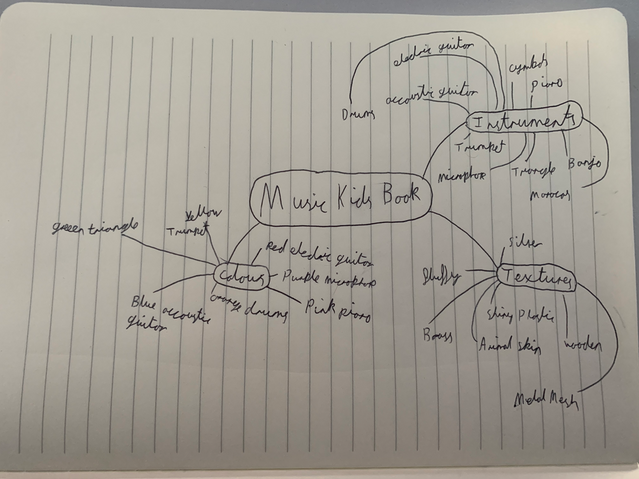 Music Kids Book
Instruments
Drums
electric guitar
acoustic guitar
cymbals
piano
Trumpet
microphone
Triangle
Maracas
Banjo
Colours
green triangle
Yellow
Trumpet
Red electric guitar
Purple microphone
Pink piano
orange drums
Blue acoustic
guitar
Textures
Silver
fluffy
Brass
Shiny Plastic
Animal skin
wooden
Metal Mesh